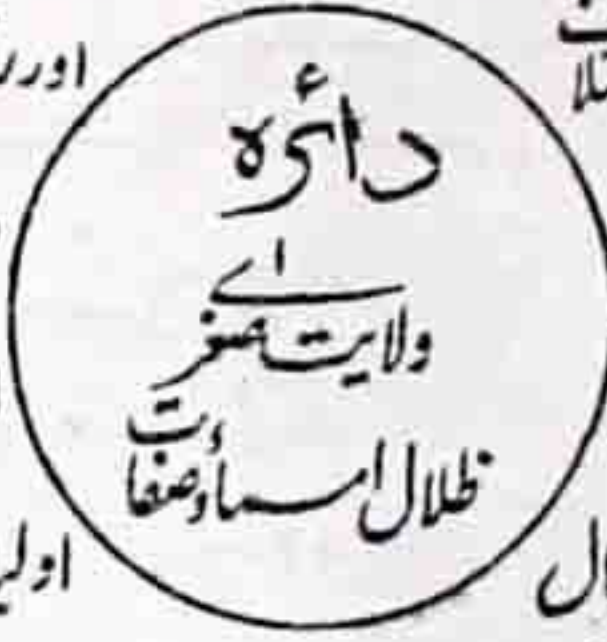 دائرہ
ولایت صغرٰے
ظلال اسماء و صفات
اور